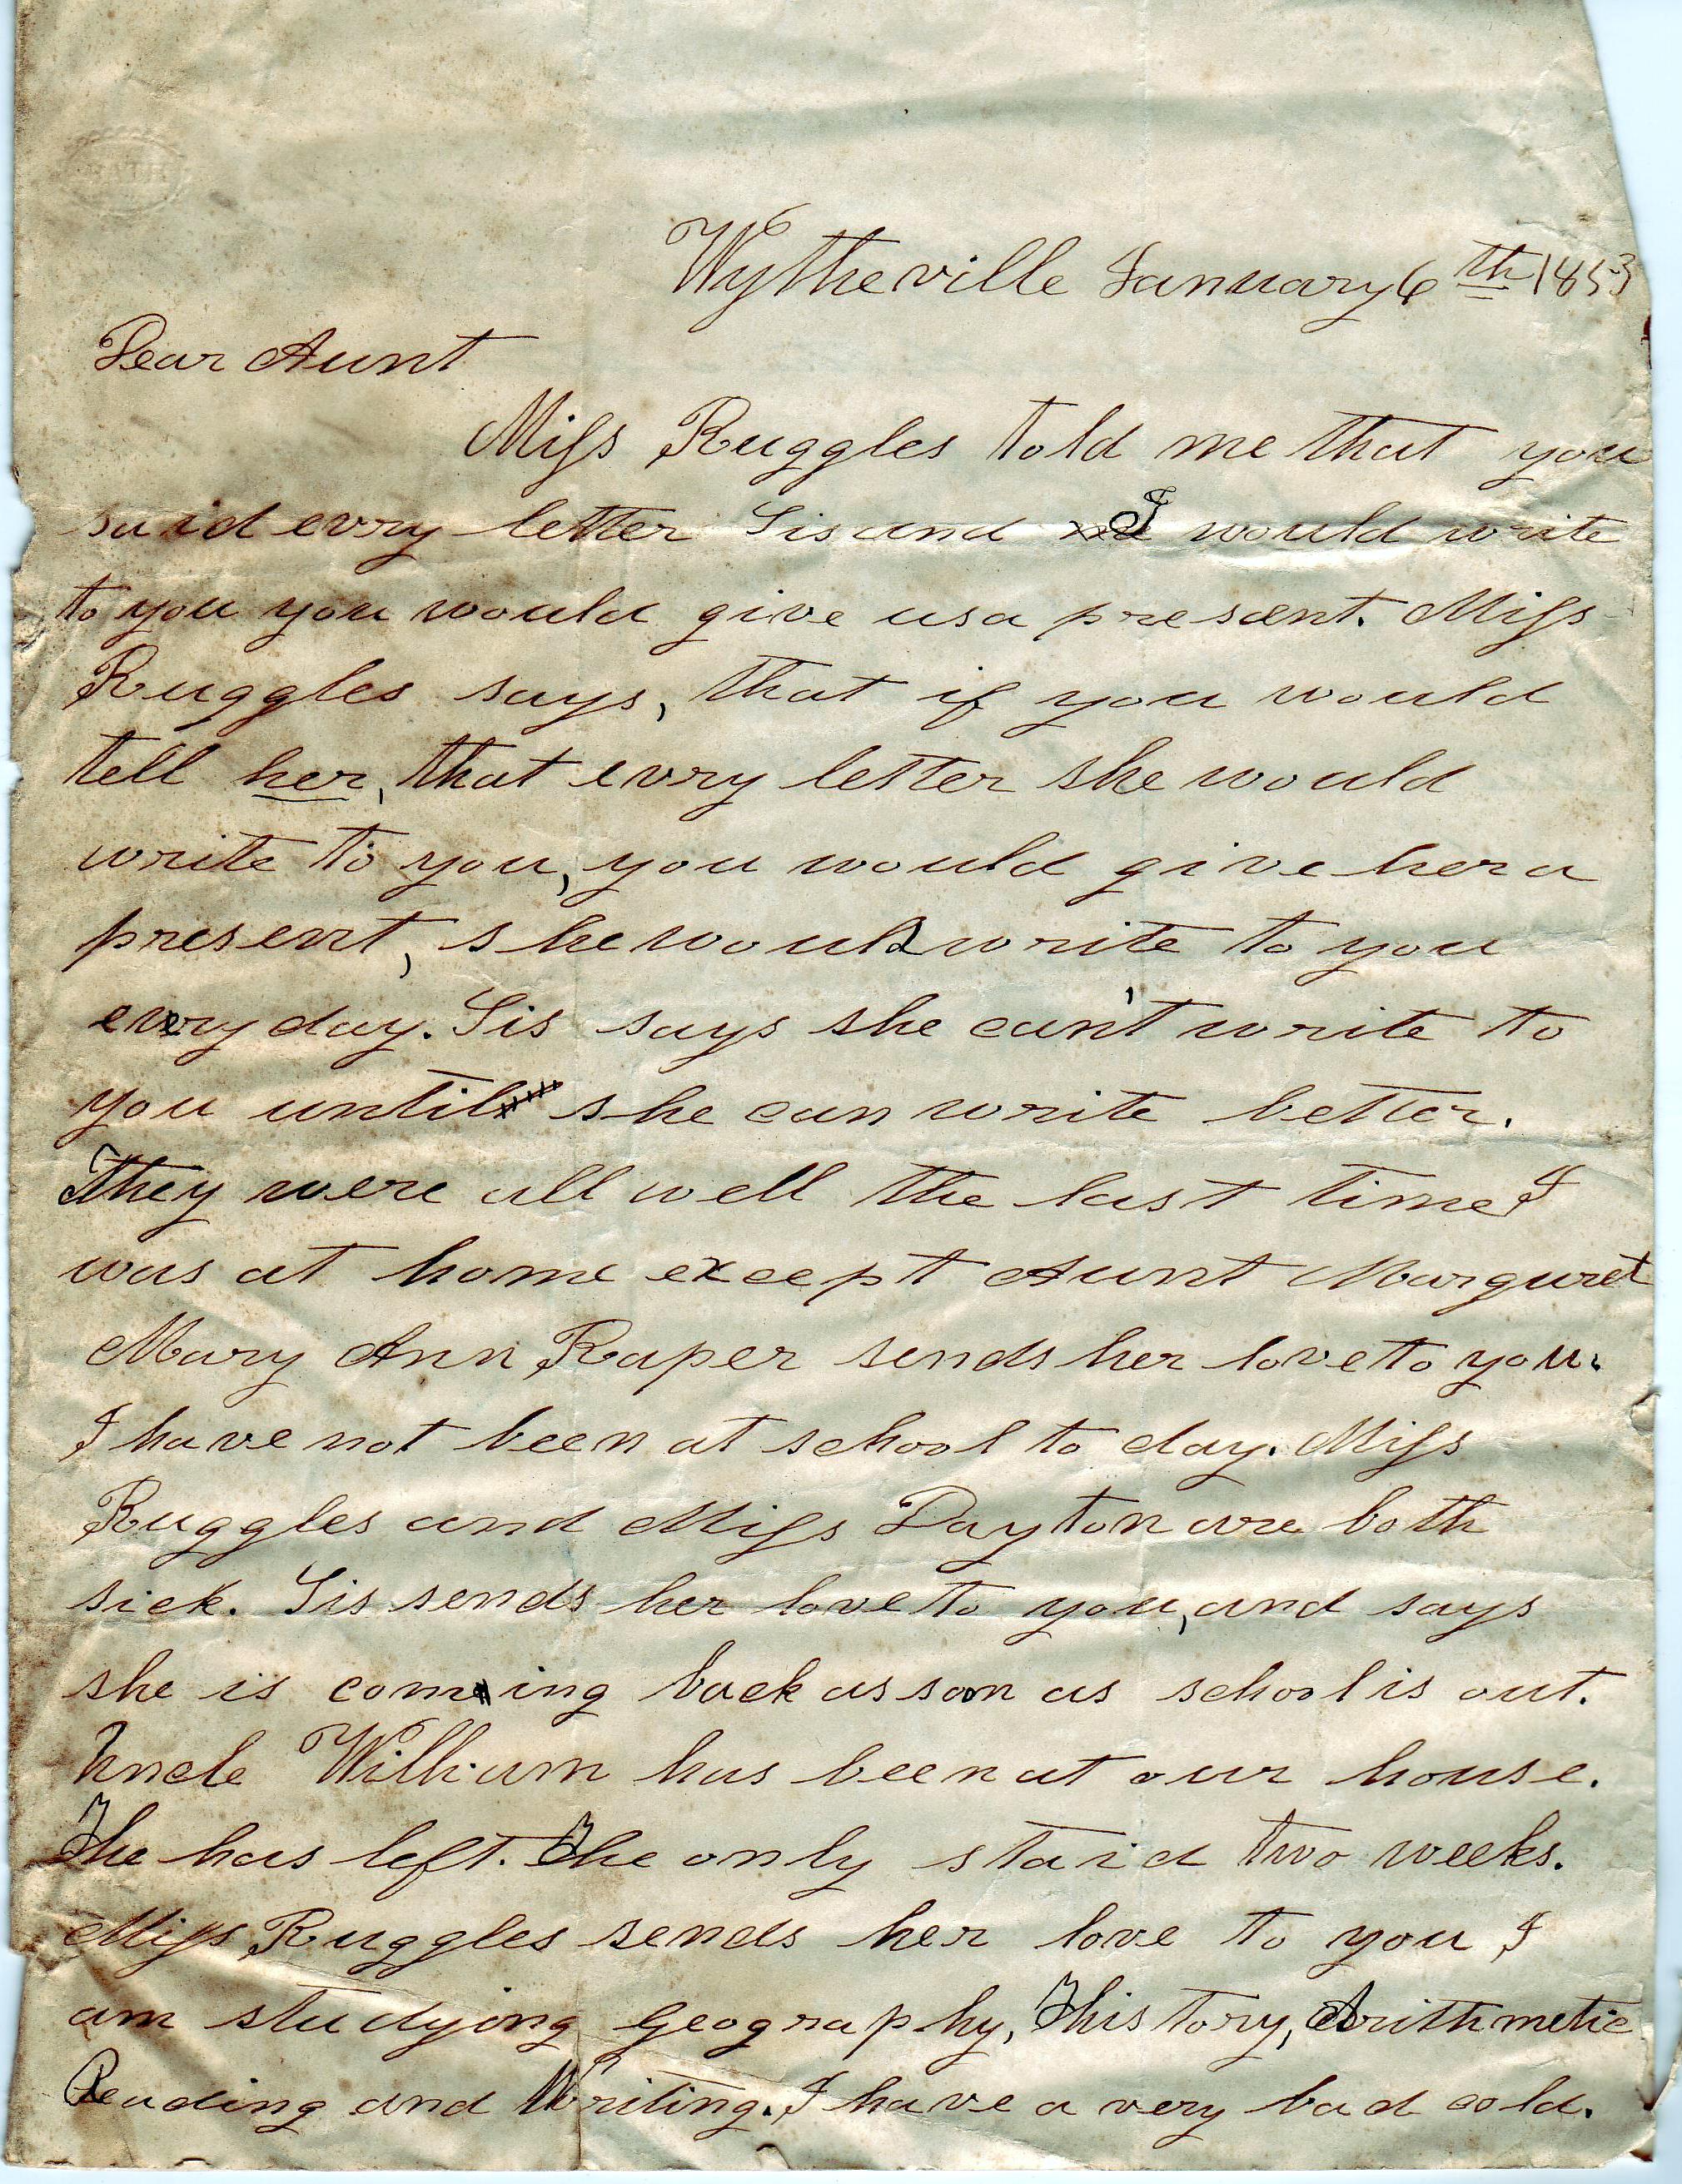 BATH
Wytheville January 6th 1853
Dear Aunt
Miss Ruggles told me that you
said evry letter Sis and I would write
to you you would give us a present. Miss
Ruggles says, that if you would
tell her, that evry letter she would
write to you, you would give her a
present, she would write to you
every day. Sis says she can't write to
you until she can write better.
They were all well the last time I
was at home except Aunt Margaret
Mary Ann Raper sends her love to you.
I have not been at school to day. Miss
Ruggles and Miss Dayton are both
sick. Sis sends her love to you, and says
she is coming back as soon as school is out.
Uncle William has been at our house.
He has left. He only staid two weeks.
Miss Ruggles sends her love to you I
am studying geography, History, Arithmetic
Reading and Writing. I have a very bad cold.